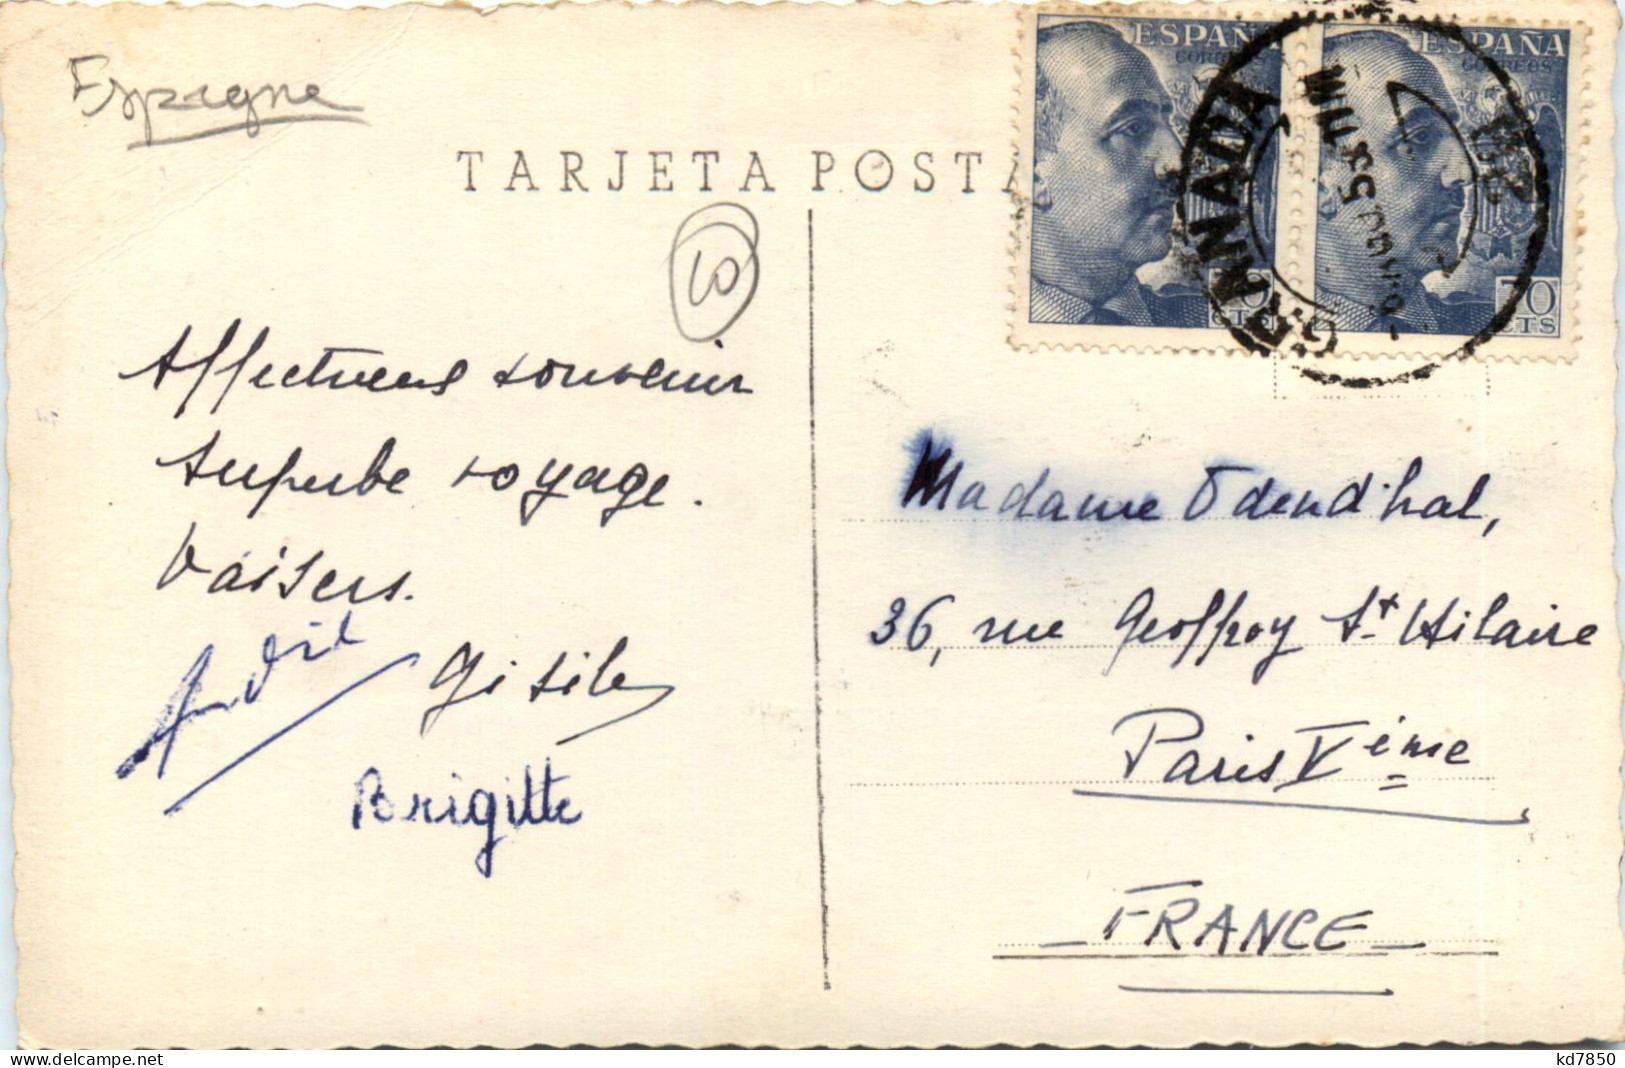 Espagne
TARJETA POSTA
10
Affectueux souvenir
Superbe voyage.
Baisers.
Gisile
Brigitte
ESPAÑA
CORREOS
ESPAÑA
CORREOS
70
CTS
70
CTS
GRANADA
Madame Odendhal,
36, rue Geoffroy St Hilaire
Paris Vième
- FRANCE -
www.delcampe.net
kd7850